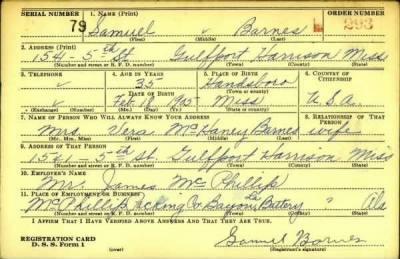 SERIAL NUMBER 1. NAME (Print) ORDER NUMBER
79 Samuel Barnes 293
(First) (Middle) (Last)
2. ADDRESS (Print)
1541 - 5th St. Gulfport Harrison Miss
(Number and street or R. F. D. number) (Town) (County) (State)
3. TELEPHONE 4. AGE IN YEARS 5. PLACE OF BIRTH 6. COUNTRY OF CITIZENSHIP
35 Handsboro
DATE OF BIRTH (Town or county)
Feb. 18 1905 Miss U.S.A.
(Exchange) (Number) (Mo.) (Day) (Yr.) (State or country)
7. NAME OF PERSON WHO WILL ALWAYS KNOW YOUR ADDRESS 8. RELATIONSHIP OF THAT PERSON
Mrs. Vera McHaney Barnes wife
(Mr., Mrs., Miss) (First) (Middle) (Last)
9. ADDRESS OF THAT PERSON
1541 - 5th St. Gulfport Harrison Miss
(Number and street or R. F. D. number) (Town) (County) (State)
10. EMPLOYER'S NAME
Mr. James McPhillip
11. PLACE OF EMPLOYMENT OR BUSINESS
McPhillip Packing Co. Bayou La Batery " Ala
(Number and street or R. F. D. number) (Town) (County) (State)
I AFFIRM THAT I HAVE VERIFIED ABOVE ANSWERS AND THAT THEY ARE TRUE.
REGISTRATION CARD
D. S. S. Form 1 (over) Samuel Barnes
(Registrant's signature)